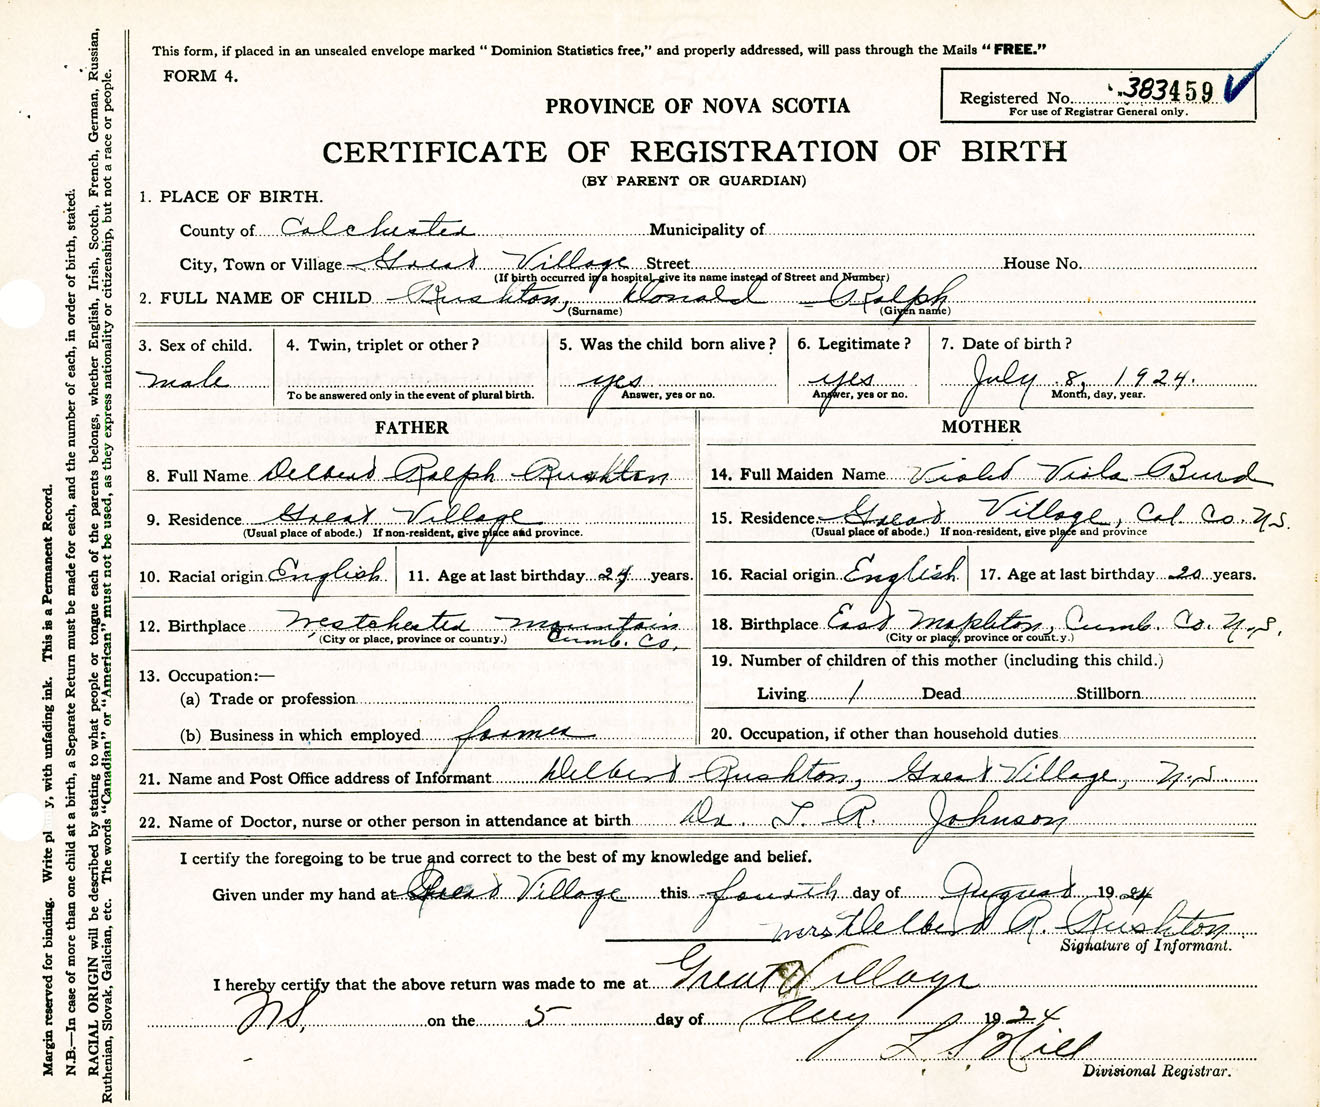 This form, if placed in an unsealed envelope marked "Dominion Statistics free," and properly addressed, will pass through the Mails "FREE."
FORM 4.
Registered No. 383459
For use of Registrar General only.
PROVINCE OF NOVA SCOTIA
CERTIFICATE OF REGISTRATION OF BIRTH
(BY PARENT OR GUARDIAN)
1. PLACE OF BIRTH.
County of Colchester Municipality of
City, Town or Village Great Village Street House No.
(If birth occurred in a hospital, give its name instead of Street and Number)
2. FULL NAME OF CHILD Rushton, Donald Ralph
(Surname) (Given name)
3. Sex of child. 4. Twin, triplet or other? 5. Was the child born alive? 6. Legitimate? 7. Date of birth?
male yes yes July 8, 1924.
To be answered only in the event of plural birth. Answer, yes or no. Answer, yes or no. Month, day, year.
FATHER MOTHER
8. Full Name Delbert Ralph Rushton 14. Full Maiden Name Violet Viola Burd
9. Residence Great Village 15. Residence Great Village, Col. Co. N.S.
(Usual place of abode.) If non-resident, give place and province. (Usual place of abode.) If non-resident, give place and province
10. Racial origin English 11. Age at last birthday 24 years. 16. Racial origin English 17. Age at last birthday 20 years.
12. Birthplace Westchester Mountain 18. Birthplace East Mapleton, Cumb. Co. N.S.
(City or place, province or country.) Cumb. Co. (City or place, province or country.)
13. Occupation:— 19. Number of children of this mother (including this child.)
(a) Trade or profession Living 1 Dead Stillborn
(b) Business in which employed farmer 20. Occupation, if other than household duties
21. Name and Post Office address of Informant Delbert Rushton, Great Village, N.S.
22. Name of Doctor, nurse or other person in attendance at birth Dr. T. R. Johnson
I certify the foregoing to be true and correct to the best of my knowledge and belief.
Given under my hand at Great Village this fourth day of August 1924
Mrs Delbert R. Rushton
Signature of Informant.
I hereby certify that the above return was made to me at Great Village
NS. on the 5 day of Aug 1924
L. S. Hill
Divisional Registrar.
Margin reserved for binding. Write pl y, with unfading ink. This is a Permanent Record.
N.B.—In case of more than one child at a birth, a Separate Return must be made for each, and the number of each, in order of birth, stated.
RACIAL ORIGIN will be described by stating to what people or tongue each of the parents belongs, whether English, Irish, Scotch, French, German, Russian,
Ruthenian, Slovak, Galician, etc. The words "Canadian" or "American" must not be used, as they express nationality or citizenship, but not a race or people.